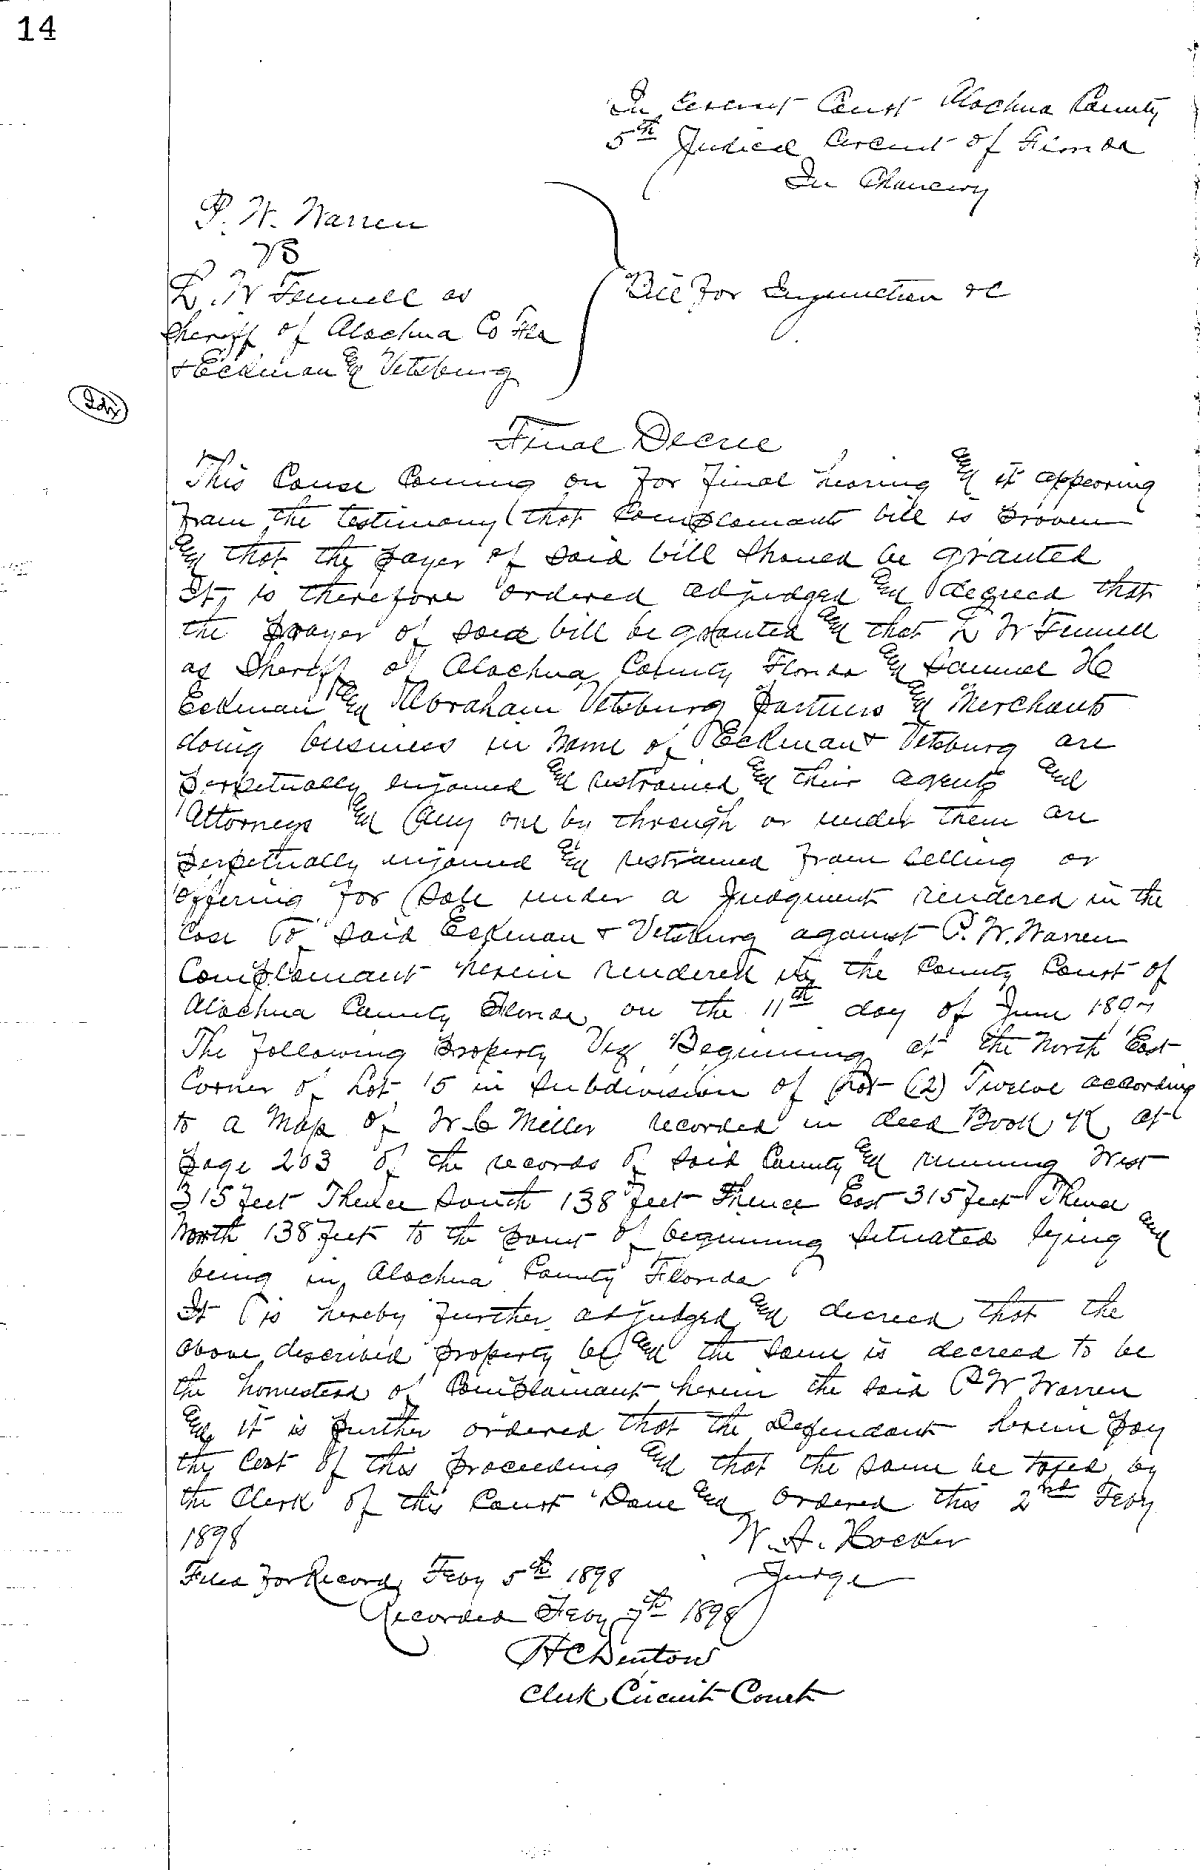 14
In Circuit Court Alachua County
5th Judical Circuit of Florida
In Chancery
P. W. Warren
vs
L. W Fennell as
Sheriff of Alachua Co Fla
& Eckman and Vetsburg
Bill For Injunction &c
Idx
Final Decree
This Cause Coming on for final hearing and it appearing
from the testimony that Complamants bill is proven
and that the payer of said bill should be granted
It is therefore ordered adjudged and degreed that
the prayer of said bill be granted and that L W Fennell
as Sheriff of Alachua County Florida and Samuel H
Eckman and Abraham Vetsburg partners and Merchants
doing business in name of Eckman & Vetsburg are
perpetually enjoined and restrained and their agents and
Attorneys and any one by through or under them are
perpetually enjoined and restrained from selling or
offering for sale under a Judgment rendered in the
Case of said Eckman & Vetsburg against P. W. Warren
Complamant herein rendered in the County Court of
Alachua County Florida on the 11th day of June 1897
The following property Viz Beginning at the North East
Corner of Lot 15 in Subdivision of Lot (12) Twelve according
to a Map of W. C Miller recorded in deed Book K at
page 203 of the records of said County and running West
315 feet Thence South 138 feet Thence East 315 feet Thence
North 138 feet to the point of beginning situated lying and
being in Alachua County Florida
It is hereby further adjudged and decreed that the
above described property be and the same is decreed to be
the homestead of Complainant herein the said P W Warren
and it is further ordered that the Defendant herein pay
the Cost of this proceeding and that the same be taxed by
the Clerk of this Court Done and Ordered this 2nd Feby
1898
W. A. Hocker
Judge
Filed For Record Feby 5th 1898
Recorded Feby 7th 1898
H C Denton
Clerk Circuit Court